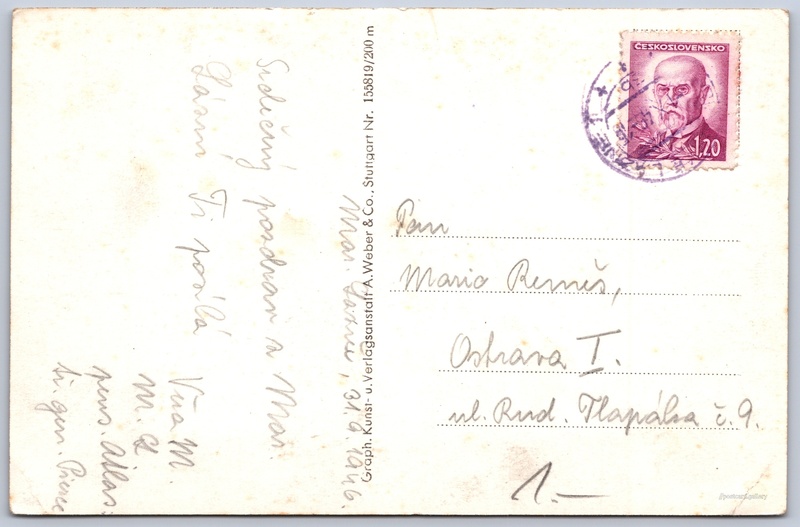 Srdečný pozdrav z Mar.
Lázní Ti posílá
Vňa M.
M. Cl
pens. Atlas
tr. gen. Pierce
Mar. Lázně, 31.9.1946.
Graph. Kunst- u. Verlagsanstalt A. Weber & Co., Stuttgart Nr. 155819/200 m
ČESKOSLOVENSKO
1.20
Pan
Mario Remeš,
Ostrava I.
ul. Rud. Tlapáka č. 9.
1.—